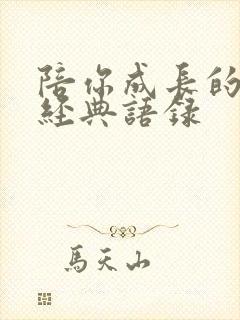 陪你成長的
經典語錄
馬天山